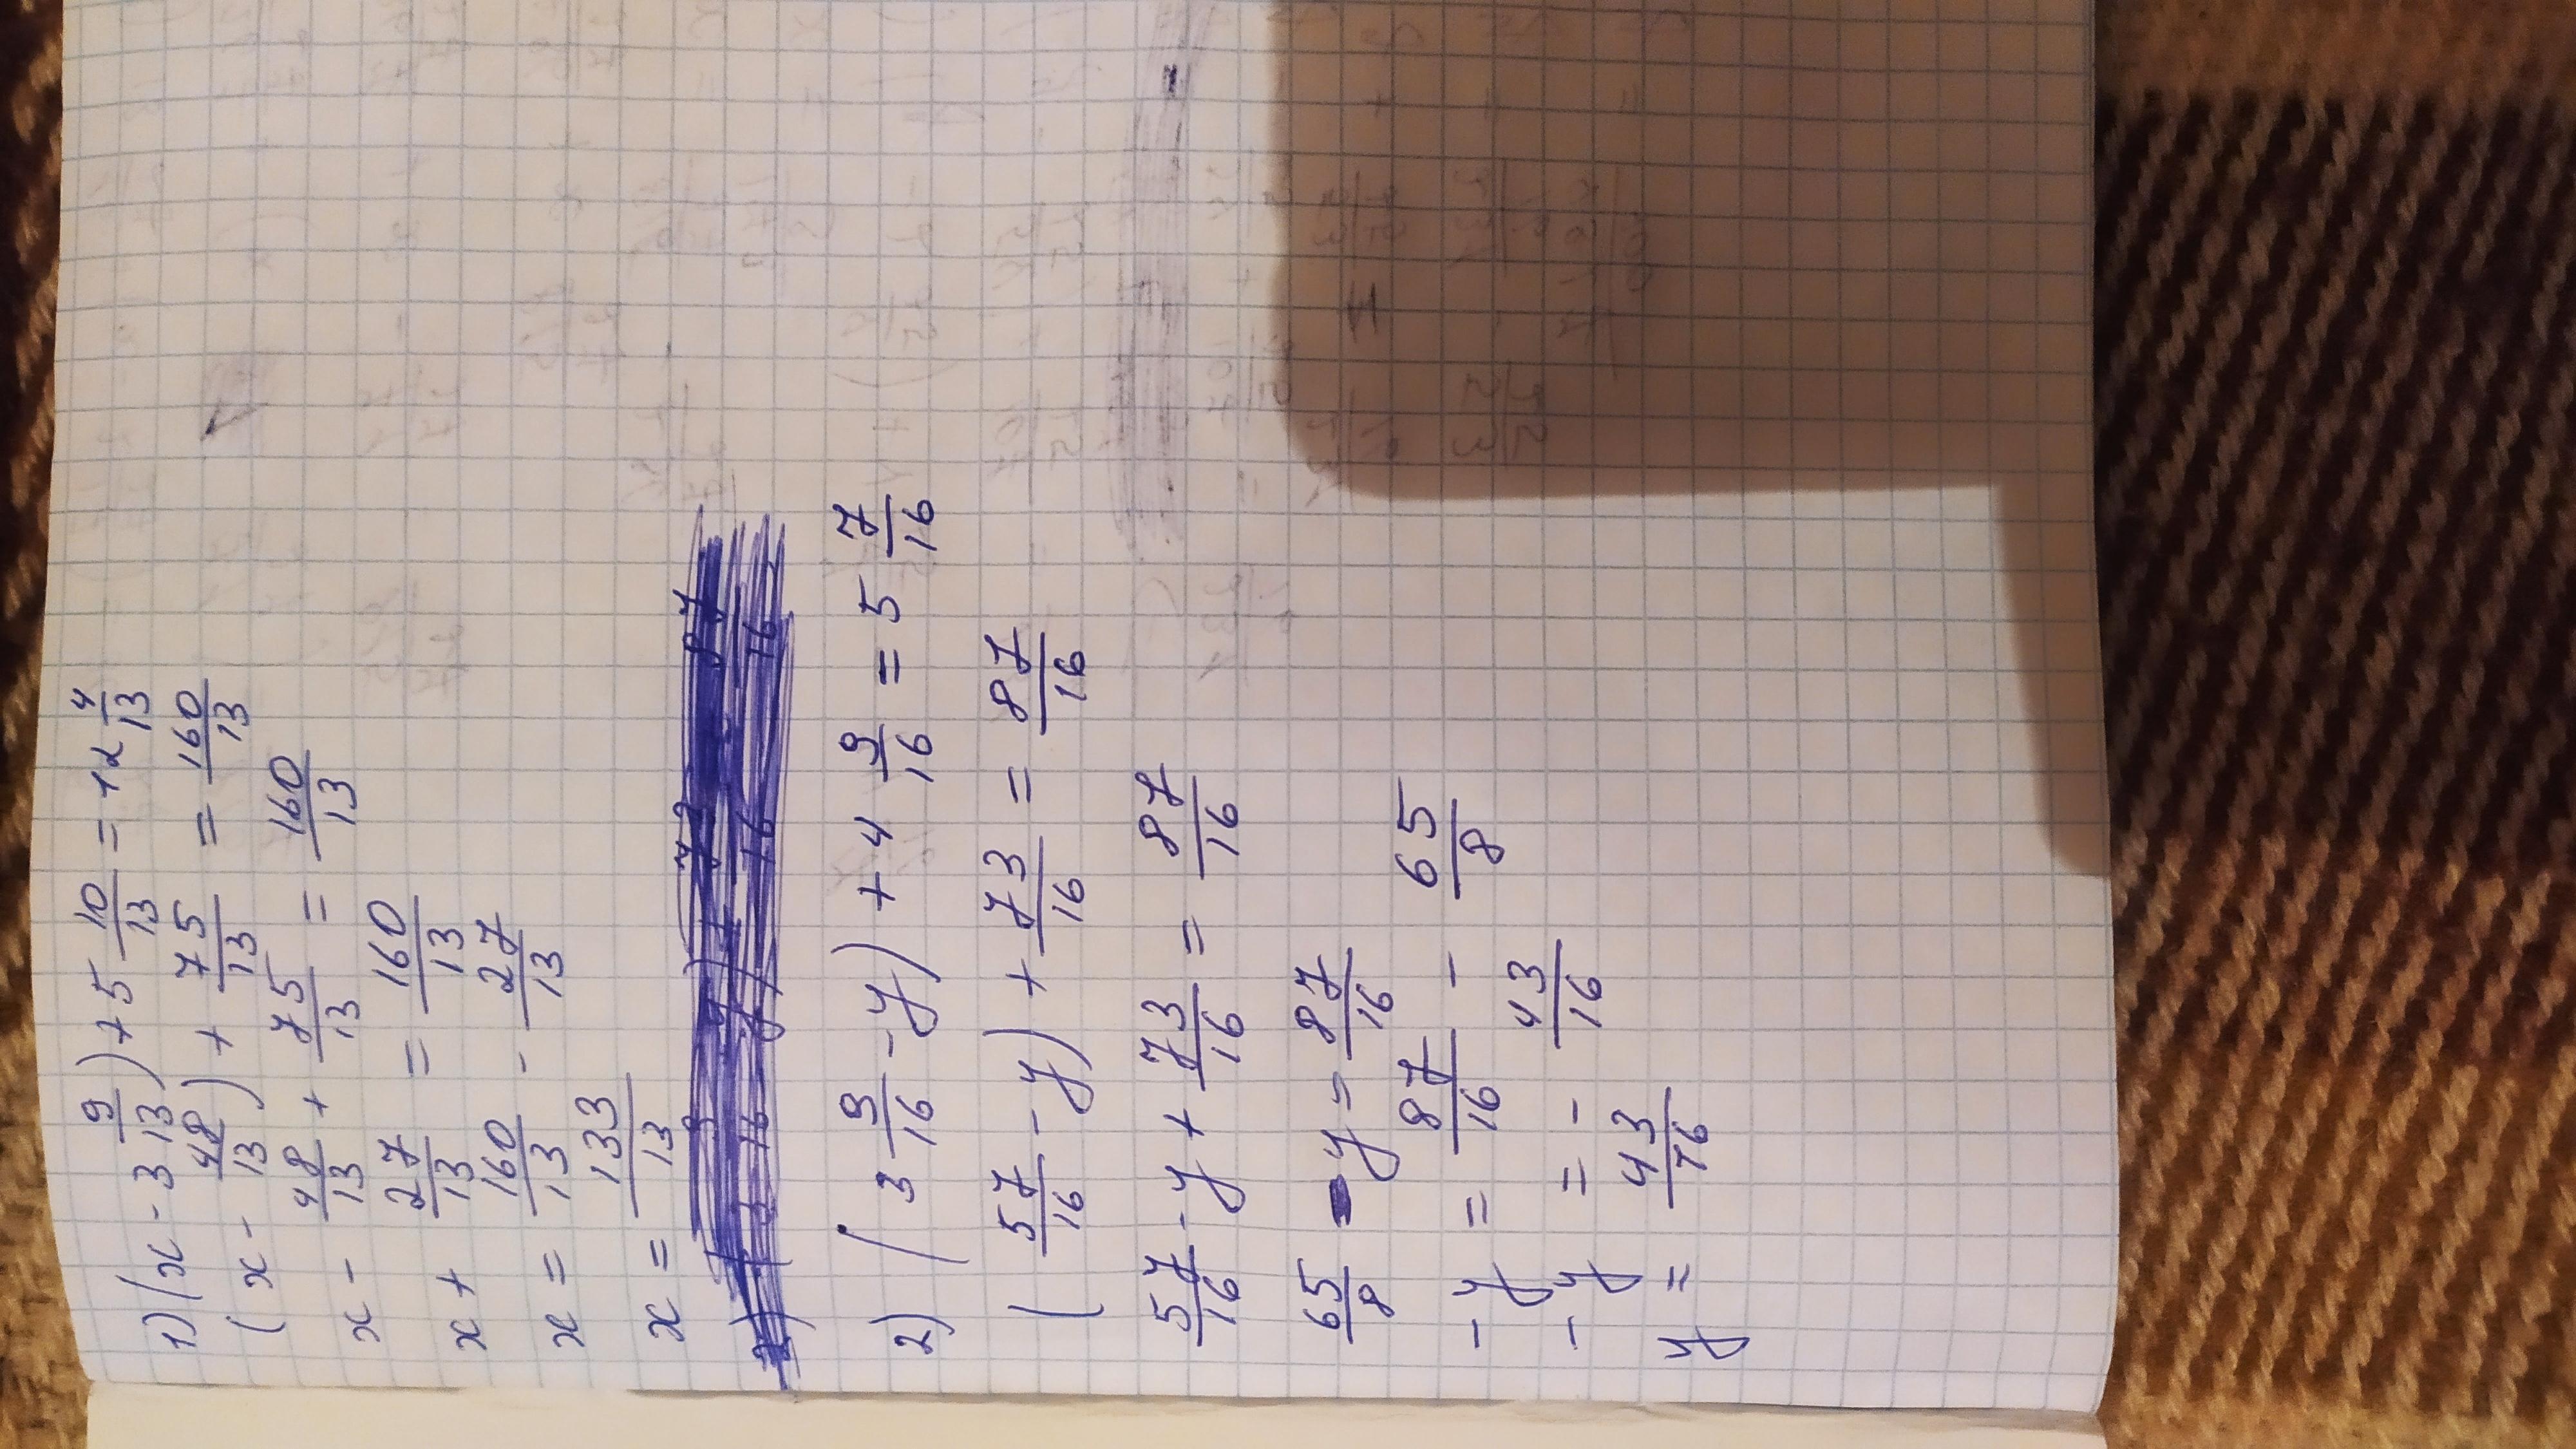 1) (x - 3 9/13) + 5 10/13 = 12 4/13
(x - 48/13) + 75/13 = 160/13
x - 48/13 + 75/13 = 160/13
x + 27/13 = 160/13
x = 160/13 - 27/13
x = 133/13
2) (3 9/16 - y) + 4 9/16 = 5 7/16
(57/16 - y) + 73/16 = 87/16
57/16 - y + 73/16 = 87/16
65/8 - y = 87/16
-y = 87/16 - 65/8
-y = - 43/16
y = 43/16